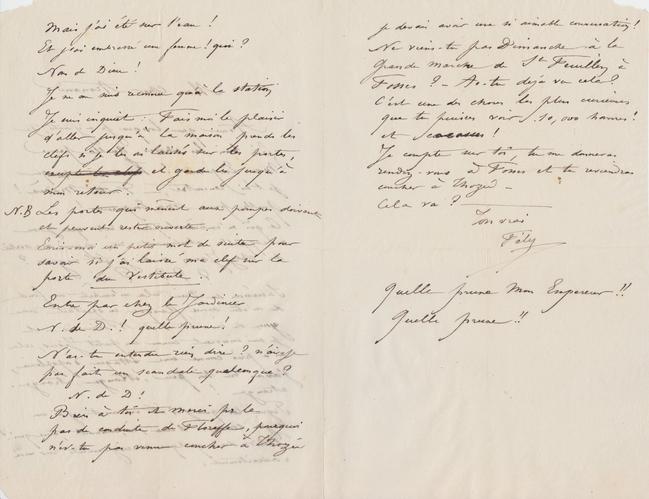 Mais j'ai été sur l'eau !
Et j'ai embrassé une femme ! qui ?
Nom de Dieu !
Je ne me suis reconnu qu'à la station
Je suis inquiet. Fais moi le plaisir
d'aller jusqu'à la maison prends les
clefs si je les ai laissés sur les portes,
et garde les jusqu'à
mon retour.
N.B Les portes qui mènent aux pompes doivent
et peuvent rester ouvertes.
Ecris moi un petit mot de suite pour
savoir si j'ai laissé ma clef sur la
porte du Vestibule.
Entre par chez le Jardinier
N. de D. ! quelle prune !
N'as-tu entendu rien dire ? n'ai-je
pas fait un scandale quelconque ?
N. de D !
Bien à toi et merci pr le
pas de conduite de Floreffe, pourquoi
n'es-tu pas venu coucher à Thozée
je devais avoir une si aimable conversation !
Ne viens-tu pas Dimanche à la
Grande marche de St Feuillen à
Fosses ? - As-tu déjà vu cela ?
C'est une des choses les plus curieuses
que tu puisses voir. 10,000 hommes !
et
Je compte sur toi, tu me donneras
rendez-vous à Fosses et tu reviendras
coucher à Thozée -
Cela va ?
Ton vrai
Fély
Quelle prune Mon Empereur !!
Quelle prune !!